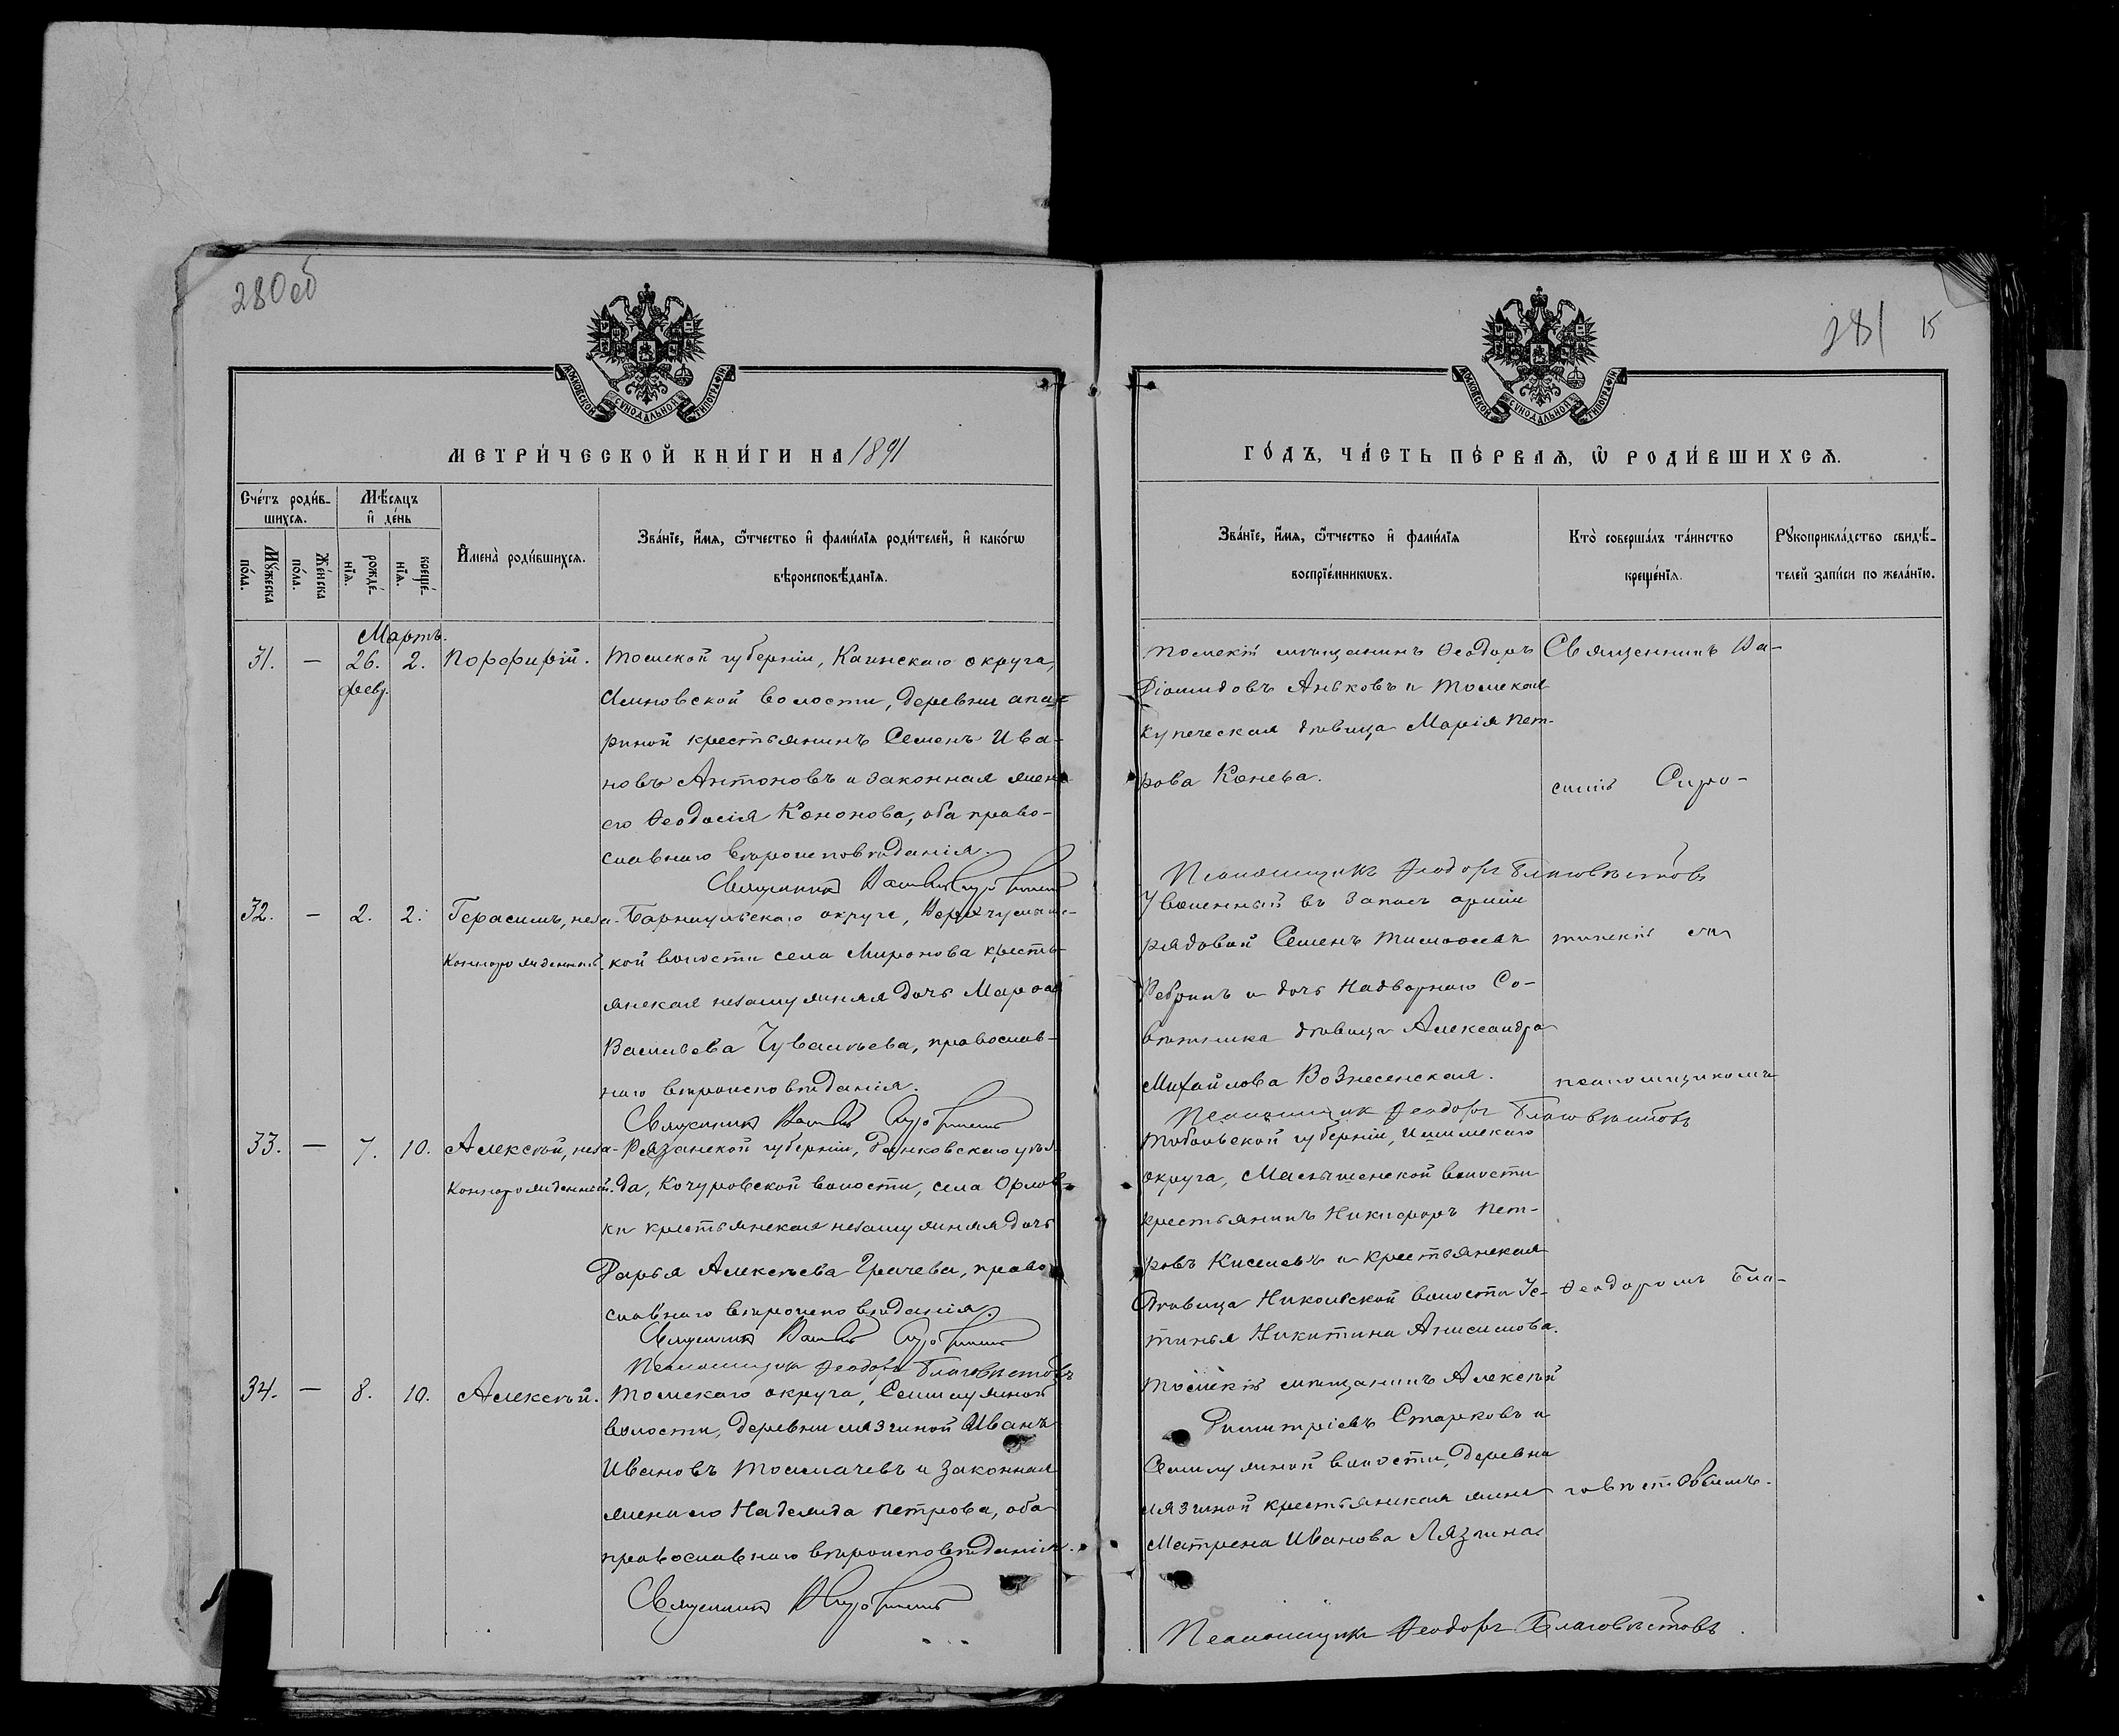 280об
МОСКОВСКОЙ СѴНОДАЛЬНОЙ ТИПОГРАФІИ
МЕТРИ́ЧЕСКОЙ КНИ́ГИ НА 1891
Сче́тъ роди́в-
шихсѧ.
Мѣ́сѧцъ
и҆ де́нь
Мꙋ́жеска
по́ла.
Же́нска
по́ла.
рожде́-
нїѧ.
креще́-
нїѧ.
И҆мена̀ роди́вшихсѧ.
Зва́нїе, и҆́мѧ, ѻ҆́тчество и҆ фами́лїѧ роди́телей, и҆ како́гѡ
вѣроисповѣ́данїѧ.
Мартъ.
31. — 26. 2. Порфирій. Томской губерніи, Каинскаго округа,
февр.
волости, деревни
риной крестьянинъ Семенъ Ива-
новъ Антоновъ и законная жена
его Ѳеодосія Кононова, оба право-
славнаго вѣроисповѣданія.
Священникъ
32. — 2. 2. Герасимъ, неза- Барнаульскаго округа,
коннорожденный. кой волости села Миронова кресть-
янская незамужняя дочь Марѳа
Васильева Чувашьева, православ-
наго вѣроисповѣданія.
Священникъ
33. — 7. 10. Алексѣй, неза- Рязанской губерніи, Данковскаго уѣз-
коннорожденный. да, Кочуровской волости, села Орлов-
ки крестьянская незамужняя дочь
Дарья Алексѣева Грачева, право-
славнаго вѣроисповѣданія.
Священникъ
Псаломщикъ Ѳеодоръ Благовѣстовъ
34. — 8. 10. Алексѣй. Томскаго округа, Семилужной
волости, деревни Лязгиной Иванъ
Ивановъ Толмачевъ и законная
жена его Надежда Петрова, оба
православнаго вѣроисповѣданія.
Священникъ
281 15
МОСКОВСКОЙ СѴНОДАЛЬНОЙ ТИПОГРАФІИ
ГО́ДЪ, ЧА́СТЬ ПЕ́РВАѦ, Ѡ҆ РОДИ́ВШИХСѦ.
Зва́нїе, и҆́мѧ, ѻ҆́тчество и҆ фами́лїѧ
воспрїе́мникѡвъ.
Кто̀ соверша́лъ та́инство
креще́нїѧ.
Рꙋкоприкла́дство свидѣ́-
телей за́писи по жела́нїю.
Томскій мѣщанинъ Ѳеодоръ Священникъ Ва-
Діомидовъ Аньковъ и Томская
купеческая дѣвица Марія Пет-
рова Конева.
силій Сиро-
Псаломщикъ Ѳеодоръ Благовѣстовъ
Уволенный въ запасъ арміи
рядовой Семенъ тинскій съ
Ребринъ и дочь Надворнаго Со-
вѣтника дѣвица Александра
Михайлова Вознесенская. псаломщикомъ
Псаломщикъ Ѳеодоръ Благовѣстовъ
Тобольской губерніи, Ишимскаго
округа, волости
крестьянинъ Никифоръ Пет-
ровъ Киселевъ и крестьянская
дѣвица Никольской волости Ус- Ѳеодоромъ Бла-
тинья Никитина Анисимова.
Томскій мѣщанинъ Алексѣй
Димитріевъ Старковъ и
Семилужной волости, деревни
Лязгиной крестьянская жена говѣстовымъ.
Матрена Иванова Лязгина
Псаломщикъ Ѳеодоръ Благовѣстовъ.